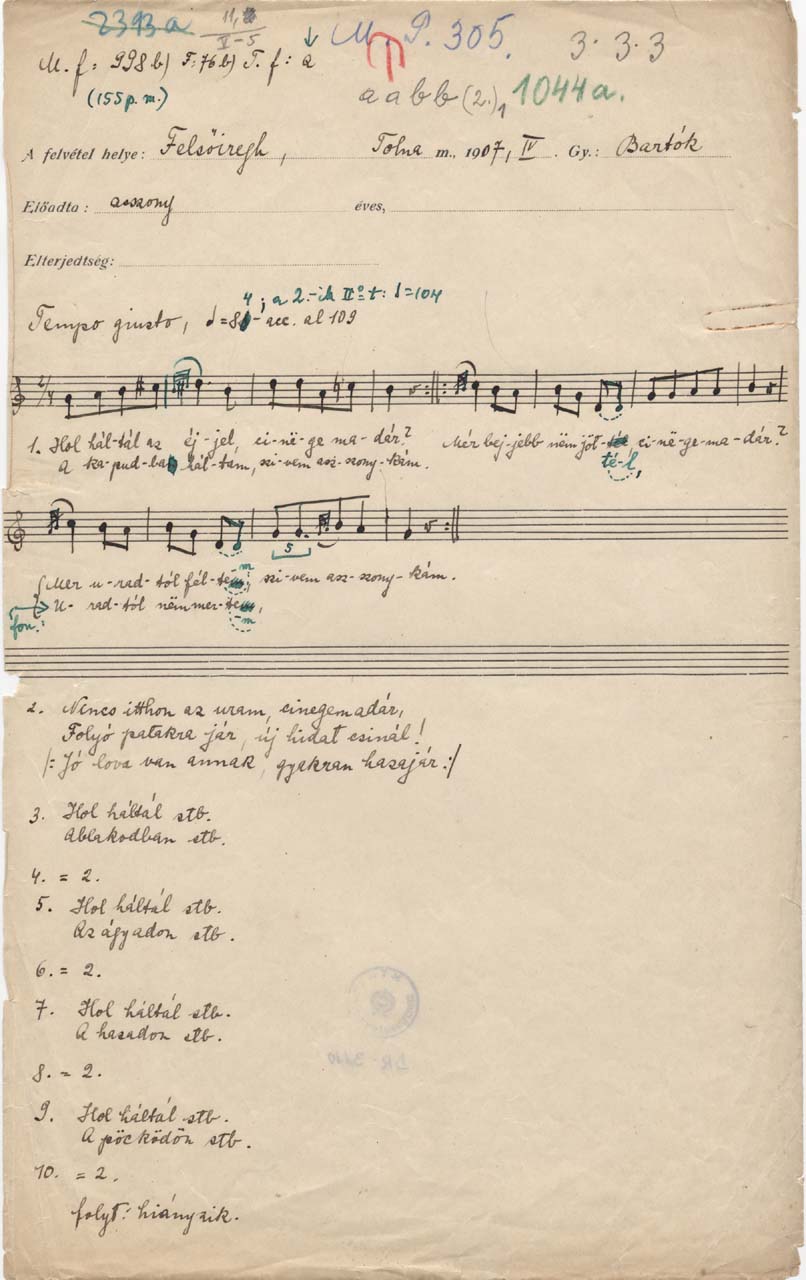 2393a 11,
V-5
M. P. 305. 3. 3. 3
M. f: 998 b) F: 76 b) T. f: a
(155 p. m.)
a a b b (2.), 1044a.
A felvétel helye: Felsőiregh, Tolna m., 1907, IV. Gy.: Bartók
Előadta: asszony éves,
Elterjedtség:
4; a 2.-ik
=104
Tempo giusto, - acc. al 109
1. Hol hál-tál az éj-jel, ci-në-ge ma-dár? Mér bej-jebb nëm jöt- ci-në-ge-ma-dár?
A ka-pud-ba hál-tam, szi-vem asz-szony-kám. té-l,
5
Mer u-rad-tól fél-te-m, szi-vem asz-szony-kám.
U-rad-tól nëm mer-te-m,
fon.:
2. Nincs itthon az uram, cinegemadár,
Folyó patakra jár, új hidat csinál!
/: Jó lova van annak, gyakran hazajár :/
3. Hol háltál stb.
Ablakodban stb.
4. = 2.
5. Hol háltál stb.
Az ágyadon stb.
6. = 2.
7. Hol háltál stb.
A hasadon stb.
8. = 2.
9. Hol háltál stb.
A pöcködön stb.
10. = 2.
folyt: hiányzik.